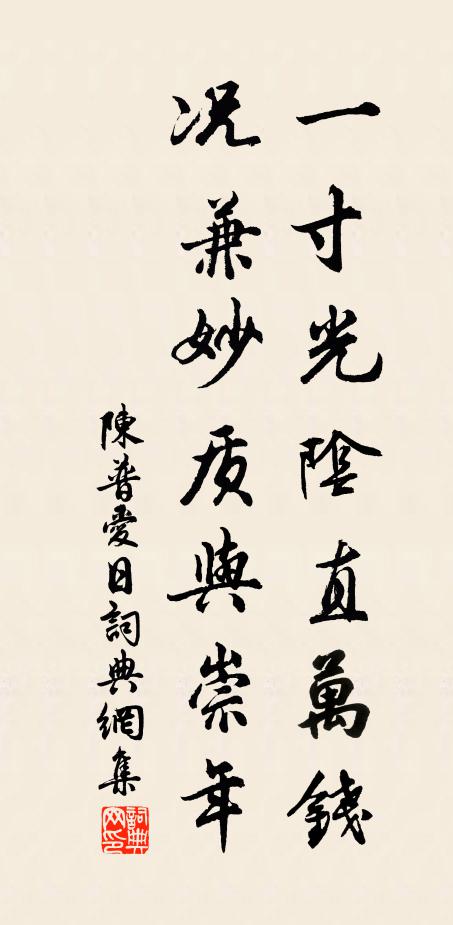 一寸光陰直萬錢
况兼妙质與崇年
陳普愛日詞典網集
詞典网印